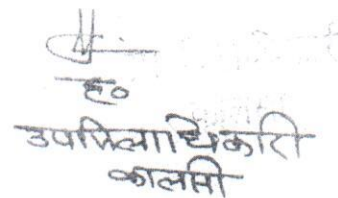 ह०
उपजिलाधिकारी
कालसी